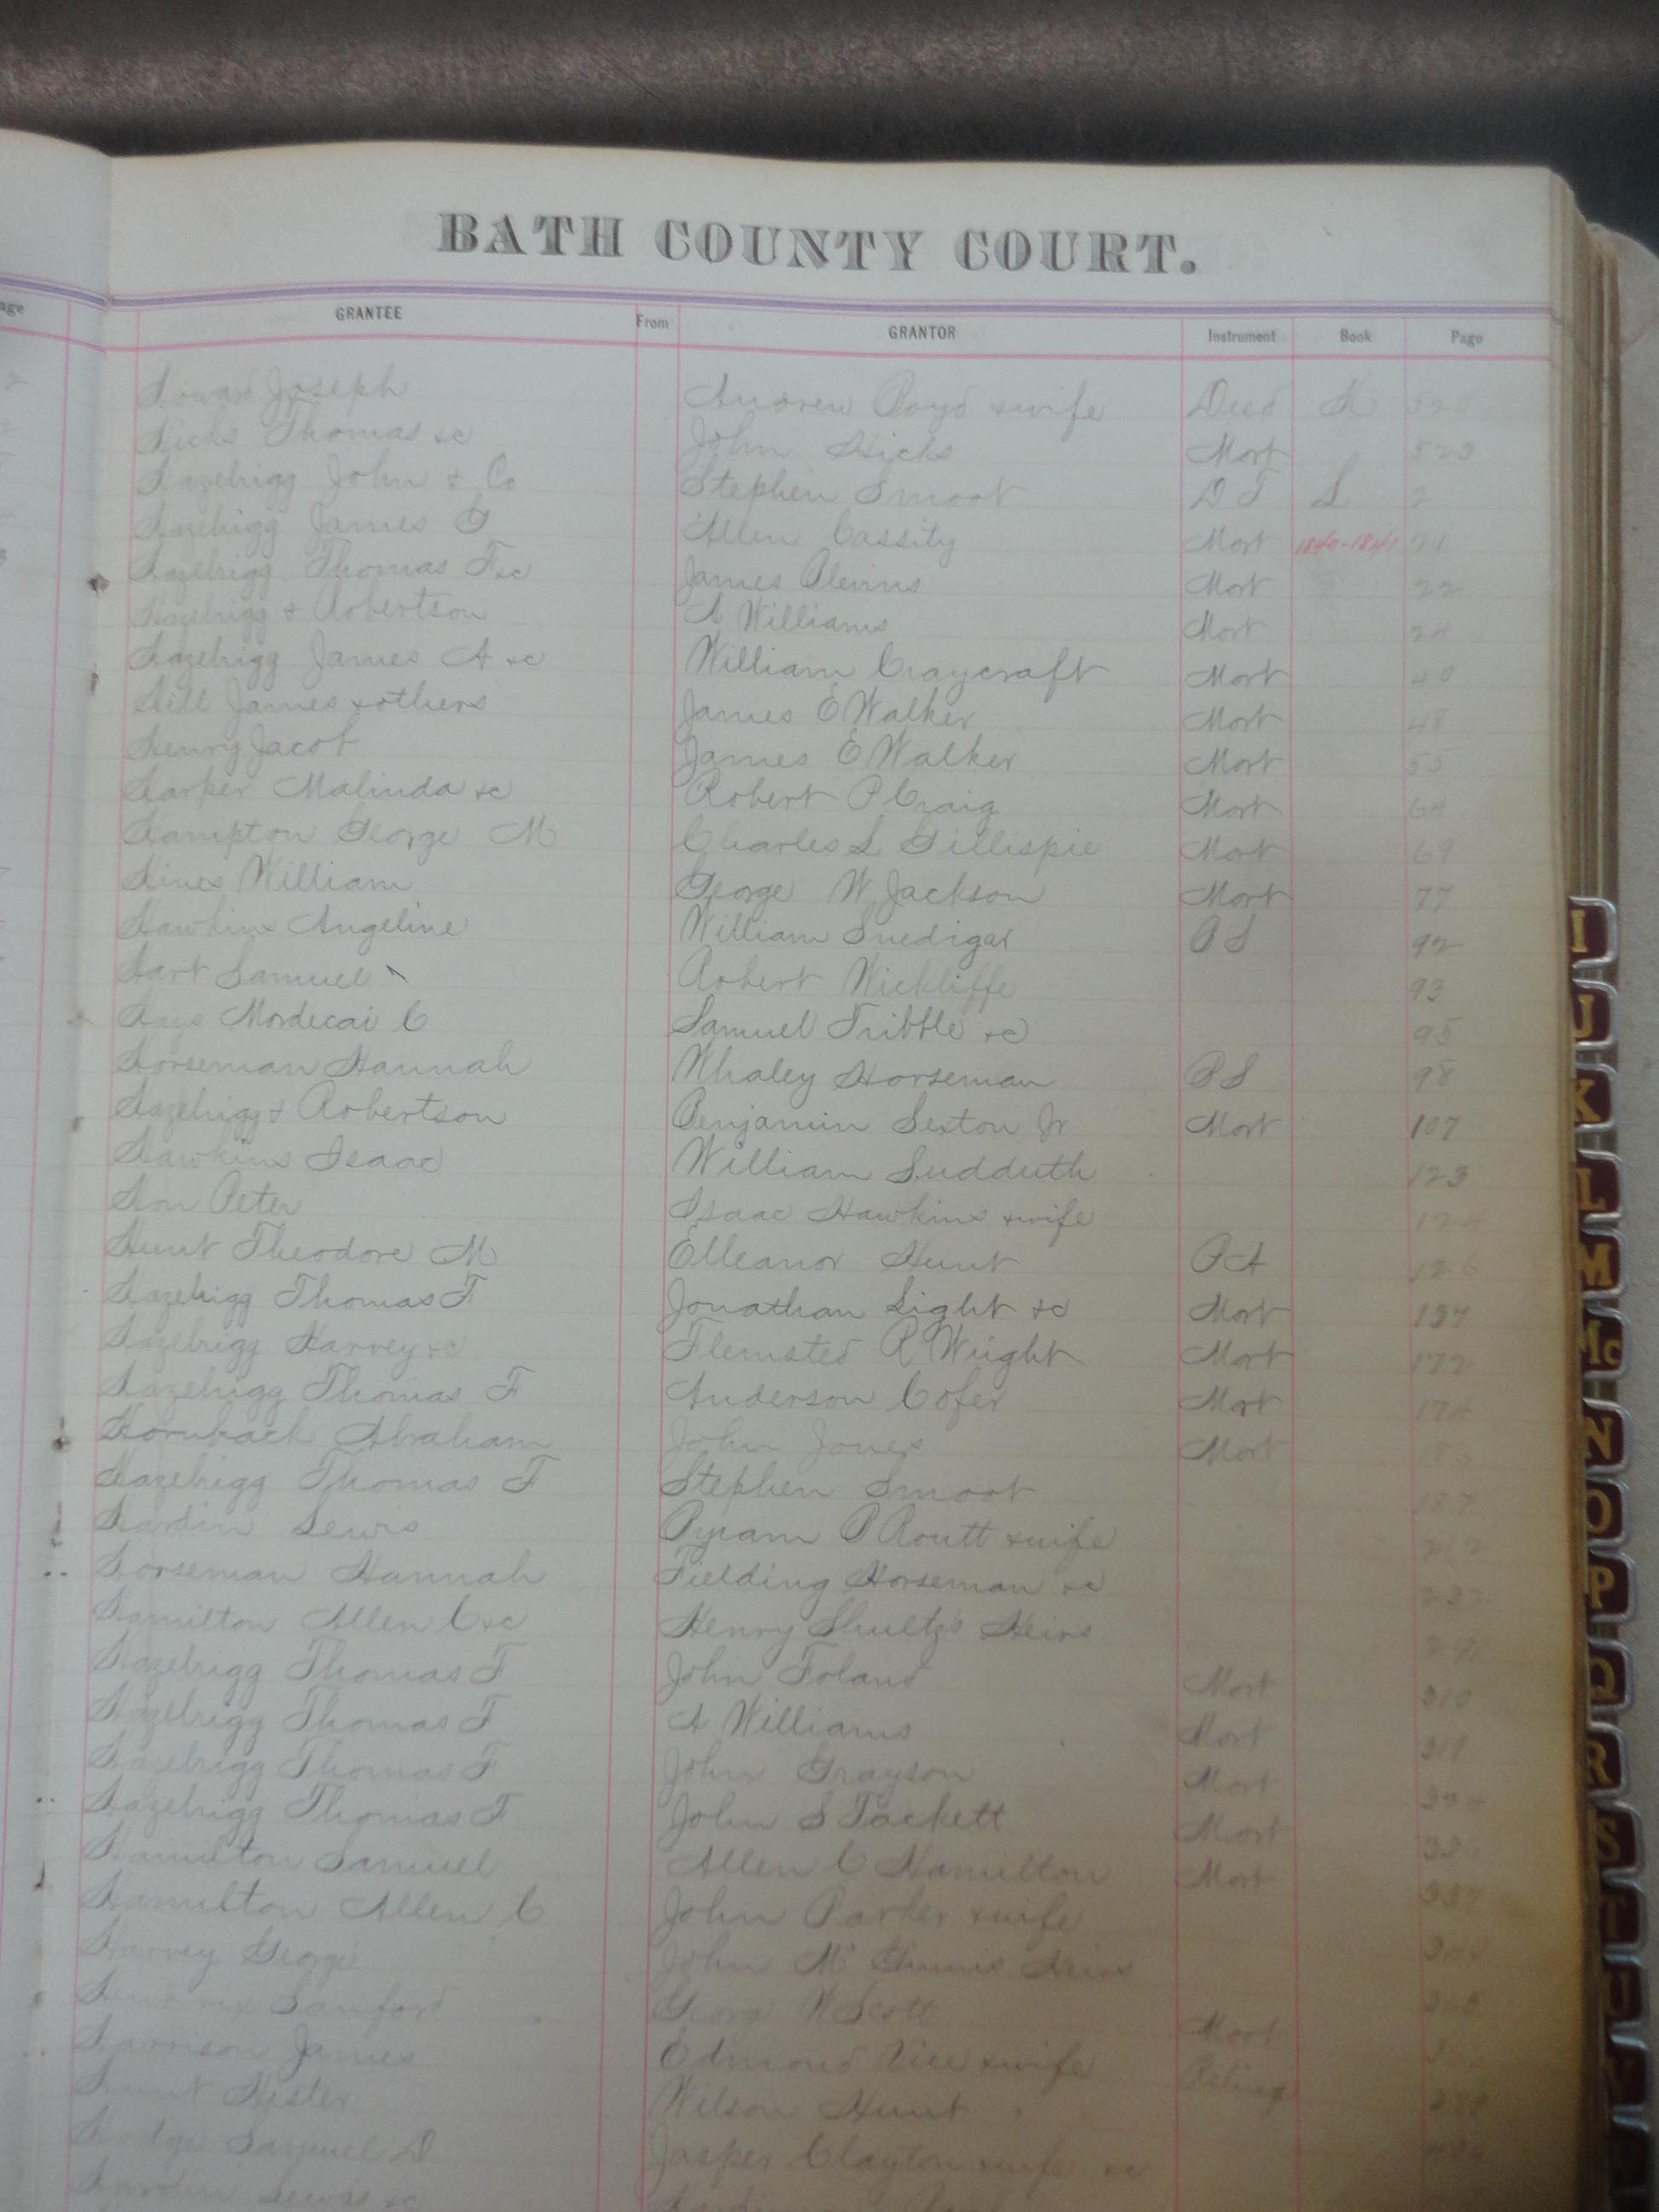 BATH COUNTY COURT.
age GRANTEE From GRANTOR Instrument Book Page
Howard Joseph Andrew Boyd & wife Deed K
Hicks Thomas &c John Hicks Mort 523
Hazelrigg John & Co Stephen Smoot D T L 2
Hazelrigg James G Allen Cassity Mort 1840-1841 21
Hazelrigg Thomas F &c James Blevins Mort 22
Hazelrigg & Robertson A Williams Mort 24
Hazelrigg James A &c William Craycraft Mort 40
Hill James & others James E Walker Mort 48
Henry Jacob James E Walker Mort 55
Harper Malinda &c Robert P Craig Mort 64
Hampton George M Charles L Gillispie Mort 69
Hines William George W Jackson Mort 77
Hawkins Angeline William Snedigar B S 92
Hart Samuel Robert Wickliffe 93
Hays Mordecai C Samuel Tribble &c 95
Horseman Hannah Whaley Horseman B S 98
Hazelrigg & Robertson Benjamin Sexton Jr Mort 107
Hawkins Isaac William Sudduth 123
Hon Peter Isaac Hawkins & wife 124
Hunt Theodore M Elleanor Hunt P A 126
Hazelrigg Thomas F Jonathan Light &c Mort 137
Hazelrigg Harvey &c Flemsted R Wright Mort 172
Hazelrigg Thomas F Anderson Cofer Mort 174
Hornback Abraham John Jones Mort
Hazelrigg Thomas F Stephen Smoot 187
Hardin Lewis Byram P Routt & wife 212
Horseman Hannah Fielding Horseman &c 232
Hamilton Allen C &c Henry Shultz's Heirs
Hazelrigg Thomas F John Toland Mort 310
Hazelrigg Thomas F A Williams Mort 319
Hazelrigg Thomas F John Grayson Mort 324
Hazelrigg Thomas F John S Tackett Mort
Hamilton Samuel Allen C Hamilton Mort 337
Hamilton Allen C John Parker & wife
Harvey George John McGinnis Heirs
Sanford George W Scott Mort
Harrison James Edmond Vice & wife Relinq
Hunt Hester Wilson Hunt
Hodge Samuel D Jasper Clayton & wife &c
Hardin Lewis &c
I
J
K
L
M
Mc
N
O
P
Q
R
S
T
U